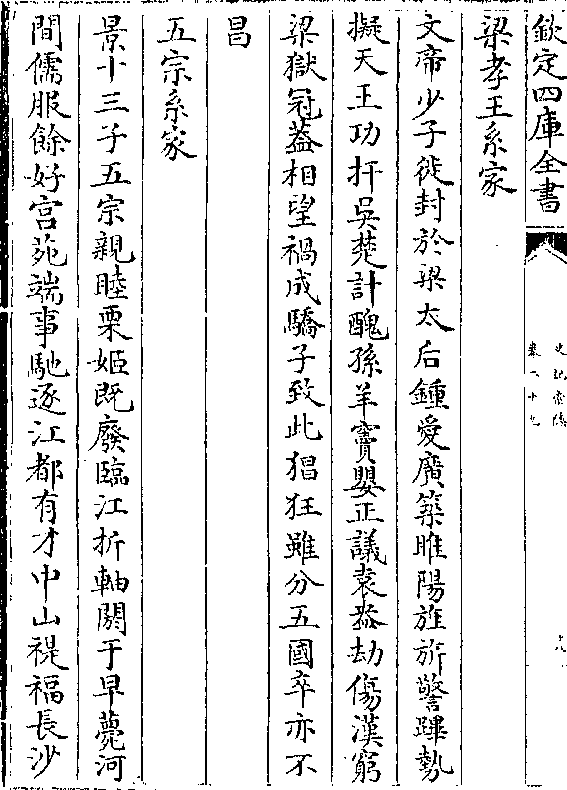 欽定四庫全書
史記索隱
卷二十九
梁孝王系家
文帝少子徙封於梁太后鍾愛廣築睢陽旌旂警蹕勢
擬天王功扞吳楚計醜孫羊竇嬰正議袁盎劫傷漢窮
梁獄冠蓋相望禍成驕子致此猖狂雖分五國卒亦不
昌
五宗系家
景十三子五宗親睦栗姬既廢臨江折軸閼于早薨河
間儒服餘好宮苑端事馳逐江都有才中山禔福長沙